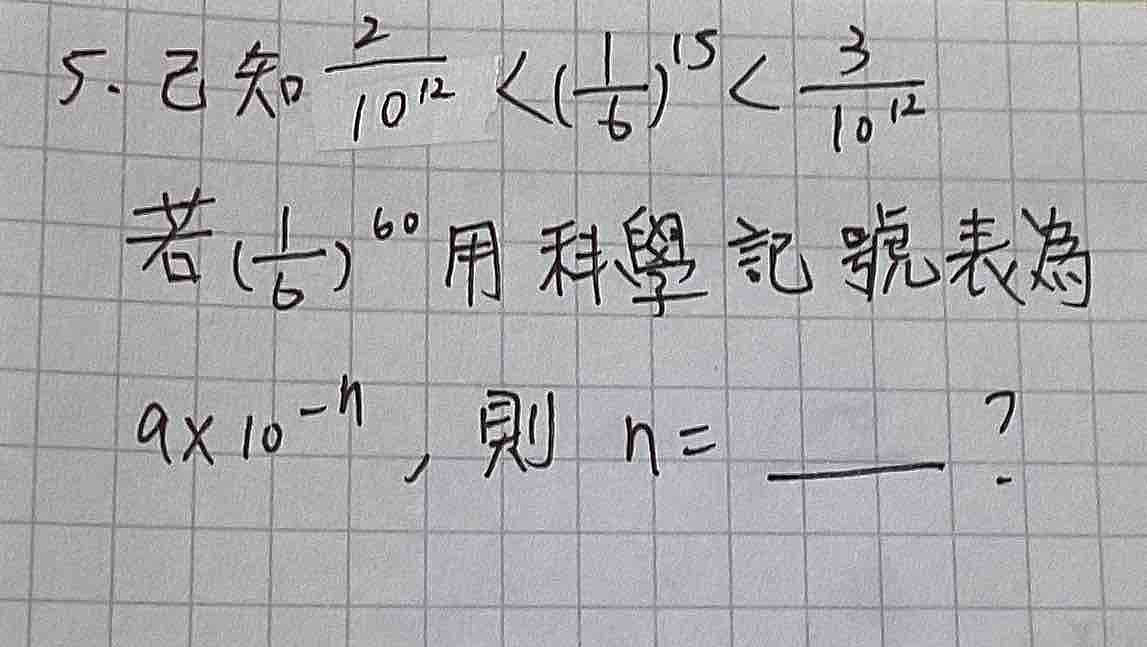 5. 已知 2/10^12 < (1/6)^15 < 3/10^12
若 (1/6)^60 用科學記號表為
a×10^-n, 則 n= ____ ?